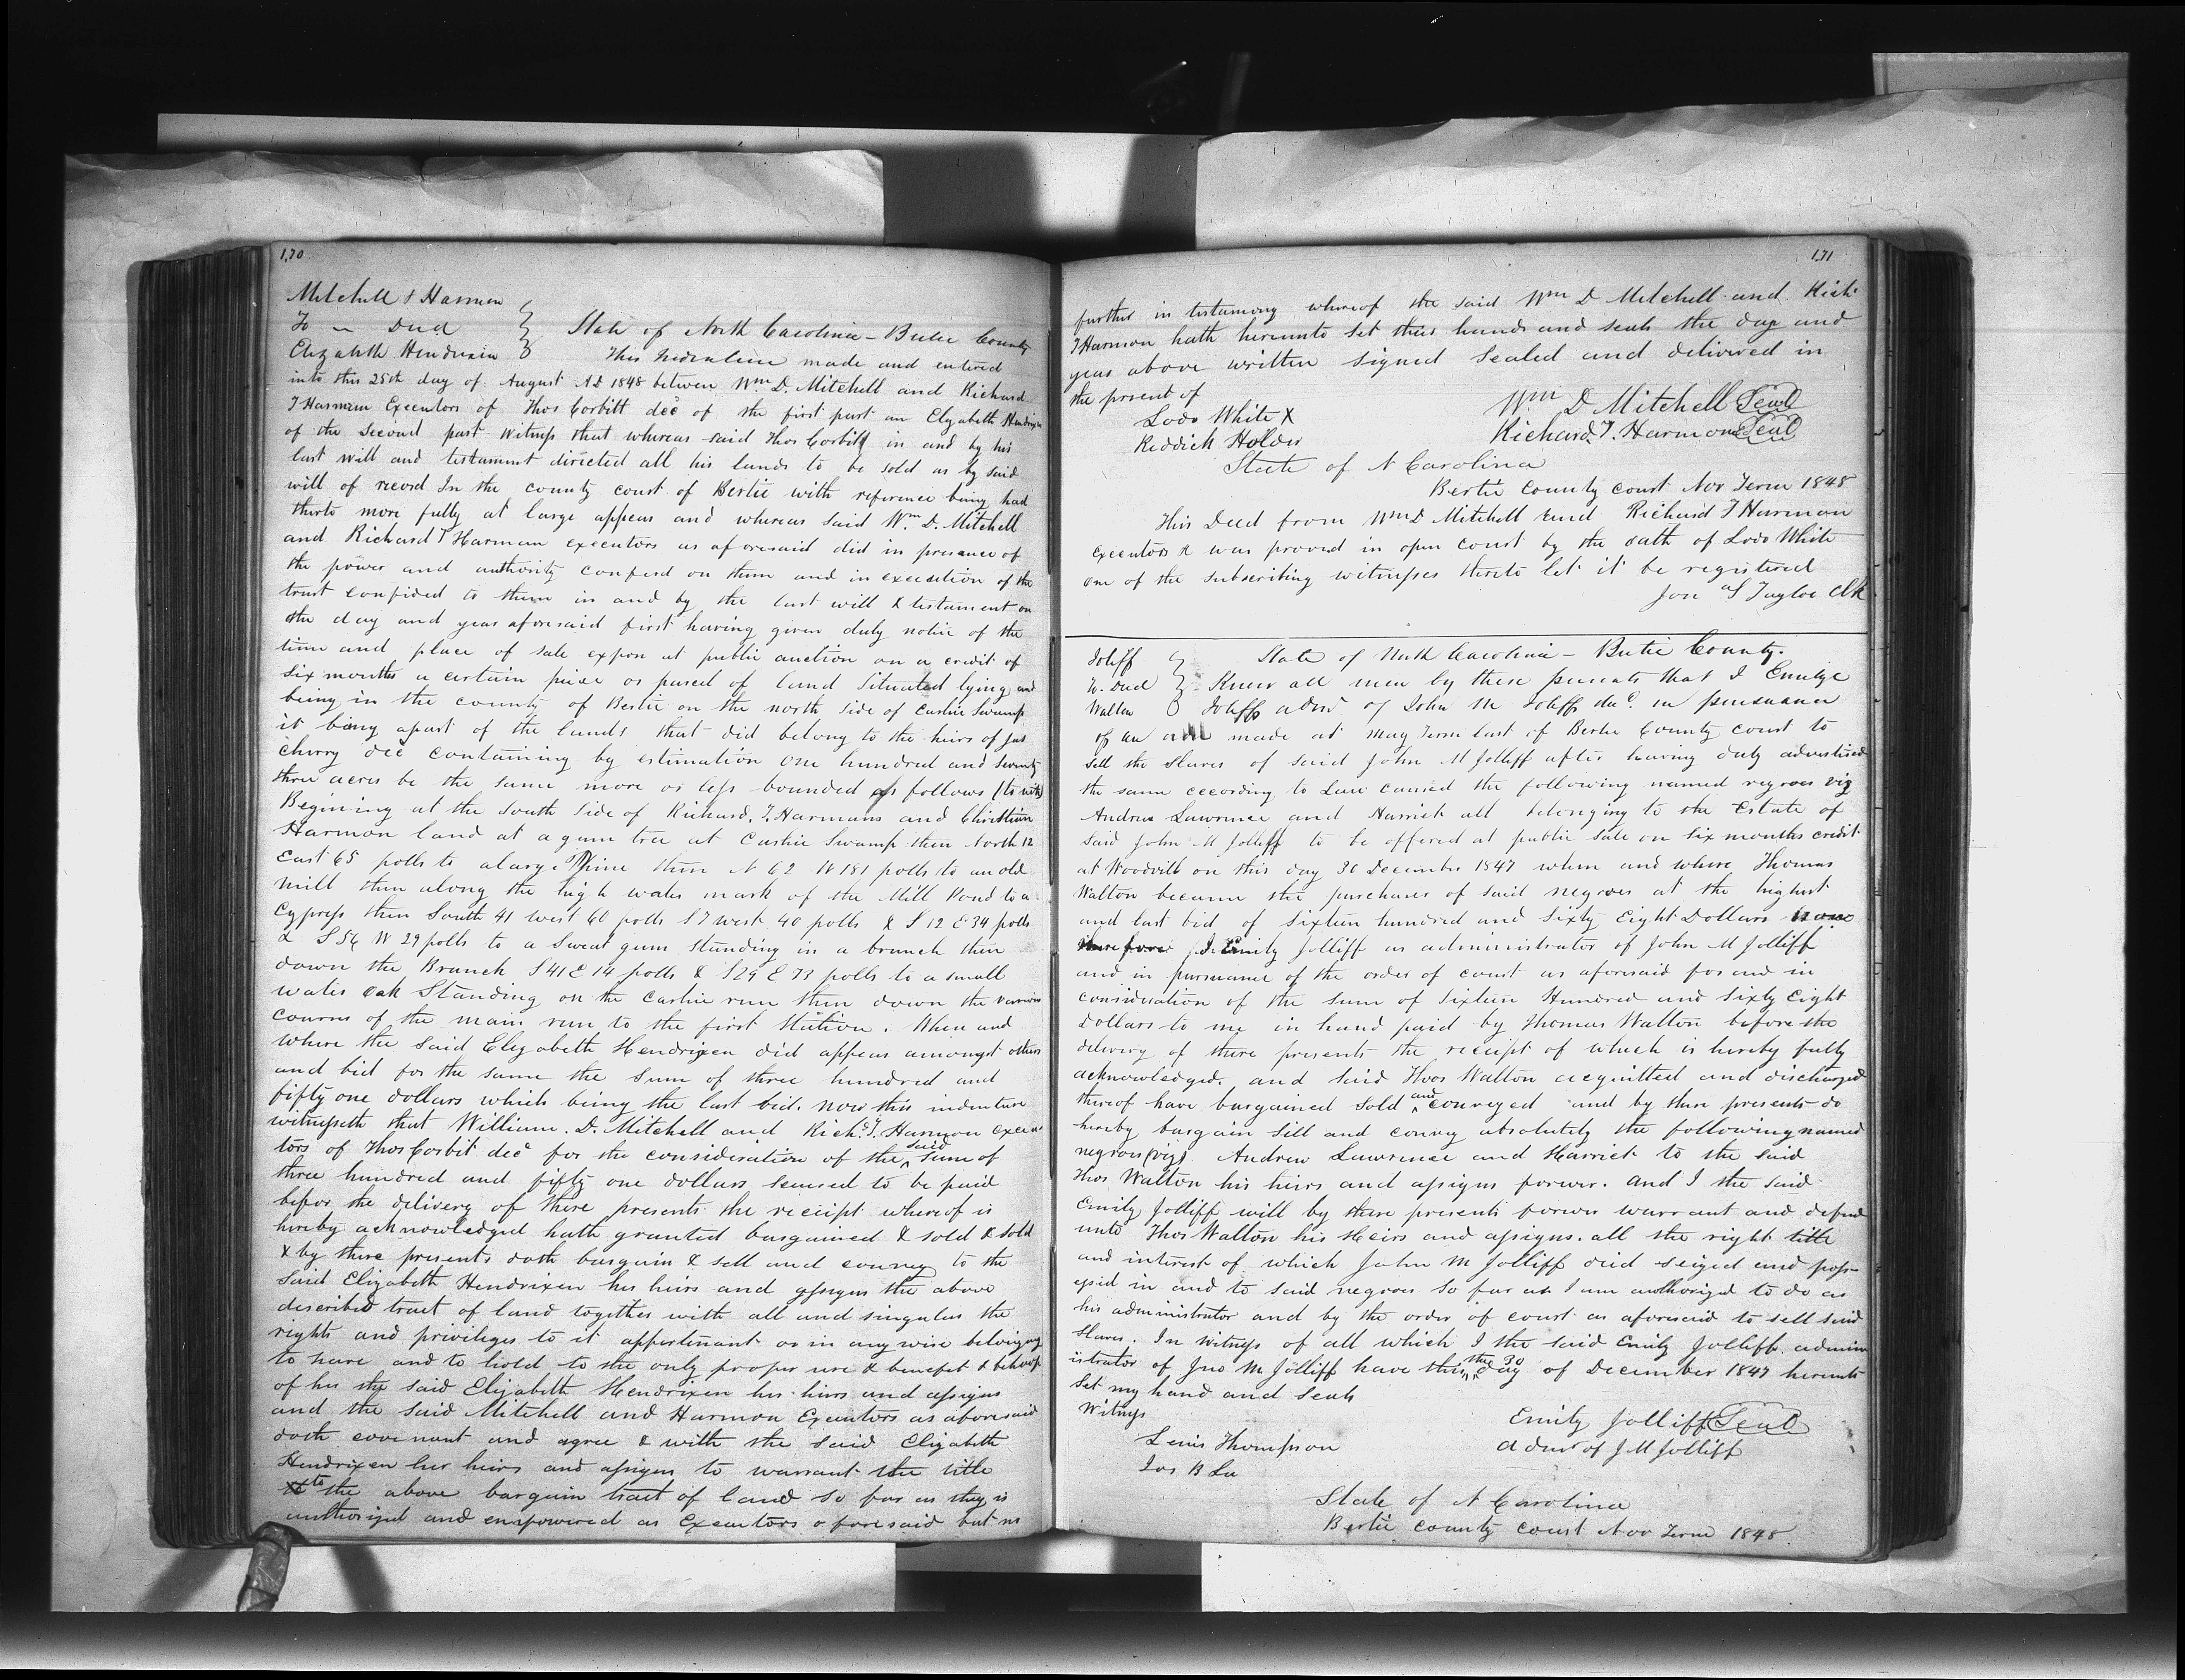 170
Mitchell & Harmon
To Deed State of North Carolina - Bertie County
Elizabeth Hendrixen This Indenture made and entered
into this 25th day of August AD 1848 between Wm D. Mitchell and Richard
T Harmon Executors of Thos Corbitt decd of the first part an Elyabeth Hendrixen
of the second part Witness that whereas said Thos Corbitt in and by his
last will and testament directed all his lands to be sold as by said
will of record In the county court of Bertie with reference being had
thereto more fully at large appears and whereas said Wm. D. Mitchell
and Richard T Harman executors as aforesaid did in presance of
the power and authority conferd on them and in execution of the
trust confided to them in and by the last will & testament on
the day and year aforesaid first having given duly notice of the
time and place of sale expon at public auction on a credit of
six months a certain peice or parcel of land situated lying and
being in the county of Bertie on the north side of Cashie Swamp
it being apart of the lands that did belong to the heirs of Jas
Cherry decd containing by estimation one hundred and seventy
three acres be the same more or less bounded as follows (to wit)
Begining at the South Side of Richard. T. Harmans and Christian
Harmon land at a gum tree at Cashie Swamp then North 12
East 65 polls to a large Pine then N 62 W 181 polls to an old
mill then along the high water mark of the Mill Pond to a
Cypress then South 41 west 60 polls S 7 west 40 polls & S 12 E 34 polls
& S 56 W 29 polls to a Sweat gum standing in a branch then
down the Branch S 41 E 14 polls & S 29 E 73 polls to a small
water oak Standing on the Cashie run then down the various
courses of the main run to the first Station. When and
where the said Elizabeth Hendrixen did appear amongst others
and bid for the same the sum of three hundred and
fifty one dollars which being the last bid. now this indenture
witnesseth that William. D. Mitchell and Richd. T. Harmon execu
tors of Thos Corbit decd for the consideration of the said sum of
three hundred and fifty one dollars secured to be paid
befor the delivery of these presents the receipt whereof is
hereby acknowledged hath granted bargained & sold & sold
& by these presents doth bargain & sell and convey to the
said Elizabeth Hendrixen her heirs and assigns the above
described tract of land together with all and singular the
rights and privileges to it appertinant or in any wise belonging
to have and to hold to the only proper use & benefit & behoof
of her the said Elizabeth Hendrixen her heirs and assigns
and the said Mitchell and Harmon Executors as aforesaid
doth covenant and agree & with the said Elizabeth
Hendrixen her heirs and assigns to warrant the title
to the above bargain tract of land so far as they is
authorized and empowered as Executors aforesaid but no
171
further in testamony whereof the said Wm D Mitchell and Rich
T Harmon hath hereunto set their hands and seals the day and
year above written signed Sealed and delivered in
the present of
Lodo White X Wm D Mitchell Seal
Reddick Holder Richard. T. Harmon Seal
State of N Carolina
Bertie County court Nov Term 1848
This Deed from Wm D Mitchell and Richard T Harmon
executors & was proved in open court by the oath of Lodo White
one of the subscribing witnesses thereto let it be registered
Jon S Tayloe Clk
Joliff State of North Carolina - Bertie County.
To Deed Know all men by these presents that I Emilye
Walton Joliff admr of John M Joliff decd. in pursuance
of an made at May Term last of Bertie County court to
sell the slaves of said John M Jolliff after having duly advertised
the same according to Law caused the following named negroes viz
Andrew Lawrence and Harriet all belonging to the Estate of
said John M Jolliff to be offered at public sale on six months credit
at Woodvill on this day 30 December 1847 when and where Thomas
Walton became the purchaser of said negroes at the highest
and last bid of sixteen hundred and sixty Eight Dollars now
therefore I Emily Jolliff as administrator of John M Jolliff
and in pursuance of the order of court as aforesaid for and in
consideration of the sum of Sixteen Hundred and sixty Eight
Dollars to me in hand paid by Thomas Walton before the
delivery of these presents the receipt of which is hereby fully
acknowledged. and said Thos Walton acquitted and discharged
thereof have bargained sold and conveyed and by these presents do
hereby bargain sill and convey absolutely the following named
negroes (viz) Andrew Lawrence and Harriet to the said
Thos Walton his heirs and assigns forever. and I the said
Emily Jolliff will by these presents forever warrant and defend
unto Thos Walton his Heirs and assigns. all the right title
and interest of which John M Jolliff died seized and poss-
essed in and to said negroes so far as I am authorized to do as
his administrator and by the order of court as aforesaid to sell said
Slaves. In witness of all which I the said Emily Jolliff admin
istrator of Jno M Jolliff have this the 30 day of December 1847 hereunto
set my hand and seals
Witness Emily Jolliff Seal
Lewis Thompson admr of J M Jolliff
Jos B Lee
State of N Carolina
Bertie County court Nov Term 1848.